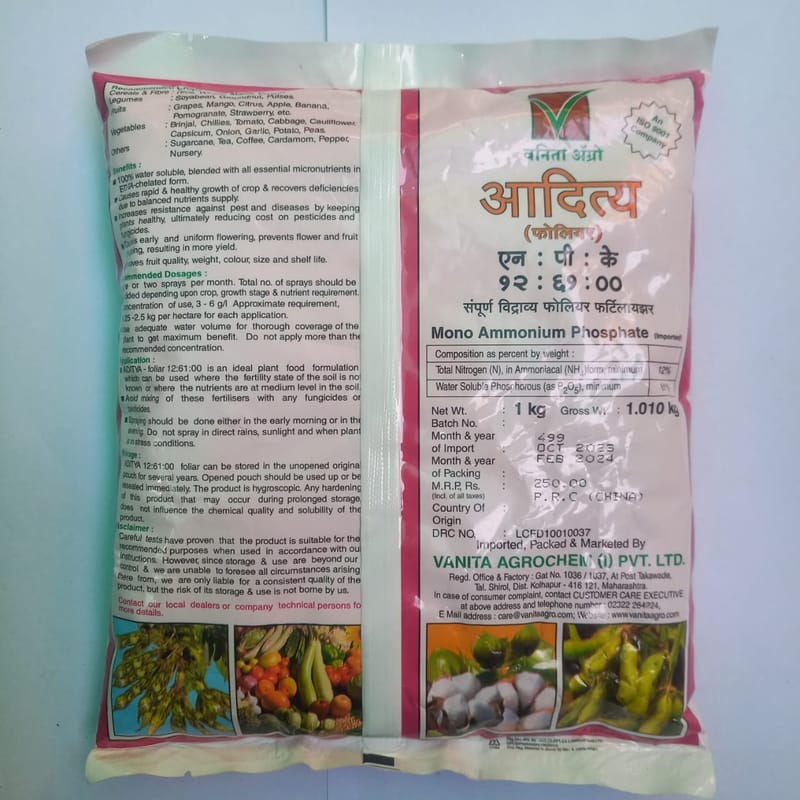 Cereals & Fibre :
Legumes : Soyabean, Groundnut, Pulses.
Fruits : Grapes, Mango, Citrus, Apple, Banana,
Pomogranate, Strawberry, etc.
Vegetables : Brinjal, Chillies, Tomato, Cabbage, Cauliflower,
Capsicum, Onion, Garlic, Potato, Peas.
Others : Sugarcane, Tea, Coffee, Cardamom, Pepper,
Nursery.
Benefits :
100% water soluble, blended with all essential micronutrients in
EDTA-chelated form.
Causes rapid & healthy growth of crop & recovers deficiencies
due to balanced nutrients supply.
Increases resistance against pest and diseases by keeping
plants healthy, ultimately reducing cost on pesticides and
fungicides.
early and uniform flowering, prevents flower and fruit
resulting in more yield.
fruit quality, weight, colour, size and shelf life.
Dosages :
or two sprays per month. Total no. of sprays should be
depending upon crop, growth stage & nutrient requirement.
of use, 3 - 6 g/l Approximate requirement,
-2.5 kg per hectare for each application.
adequate water volume for thorough coverage of the
plant to get maximum benefit. Do not apply more than the
recommended concentration.
Application :
ADITYA - foliar 12:61:00 is an ideal plant food formulation
which can be used where the fertility state of the soil is not
known or where the nutrients are at medium level in the soil.
Avoid mixing of these fertilisers with any fungicides or

Spraying should be done either in the early morning or in the
Do not spray in direct rains, sunlight and when plant
is in stress conditions.
Storage :
ADITYA 12:61:00 foliar can be stored in the unopened original
pouch for several years. Opened pouch should be used up or be
resealed immediately. The product is hygroscopic. Any hardening
of this product that may occur during prolonged storage,
does not influence the chemical quality and solubility of the
product.
Disclaimer :
Careful tests have proven that the product is suitable for the
recommended purposes when used in accordance with our
instructions. However, since storage & use are beyond our
control & we are unable to foresee all circumstances arising
there from, we are only liable for a consistent quality of the
product, but the risk of its storage & use is not borne by us.
Contact our local dealers or company technical persons for
more details.
An
ISO 9001
Company
वनिता ॲग्रो
आदित्य
(फोलियर)
एन : पी : के
१२ : ६१ : ००
संपूर्ण विद्राव्य फोलियर फर्टिलायझर
Mono Ammonium Phosphate (Imported)
Composition as percent by weight :
Total Nitrogen (N), in Ammoniacal (NH4) form, minimum 12%
Water Soluble Phosphorous (as P2O5), minimum
Net Wt. : 1 kg Gross Wt. : 1.010 kg
Batch No. : 299
Month & year of Import : OCT 2023
Month & year of Packing : FEB 2024
M.R.P. Rs. : 250.00
(Incl. of all taxes)
Country Of Origin : P.R.C (CHINA)
DRC NO. : LCFD10010037
Imported, Packed & Marketed By
VANITA AGROCHEM (I) PVT. LTD.
Regd. Office & Factory : Gat No. 1036 / 1037, At Post Takawade,
Tal. Shirol, Dist. Kolhapur - 416 121, Maharashtra.
In case of consumer complaint, contact CUSTOMER CARE EXECUTIVE
at above address and telephone number : 02322
E Mail address : care@vanitaagro.com; Website : www.vanitaagro.com